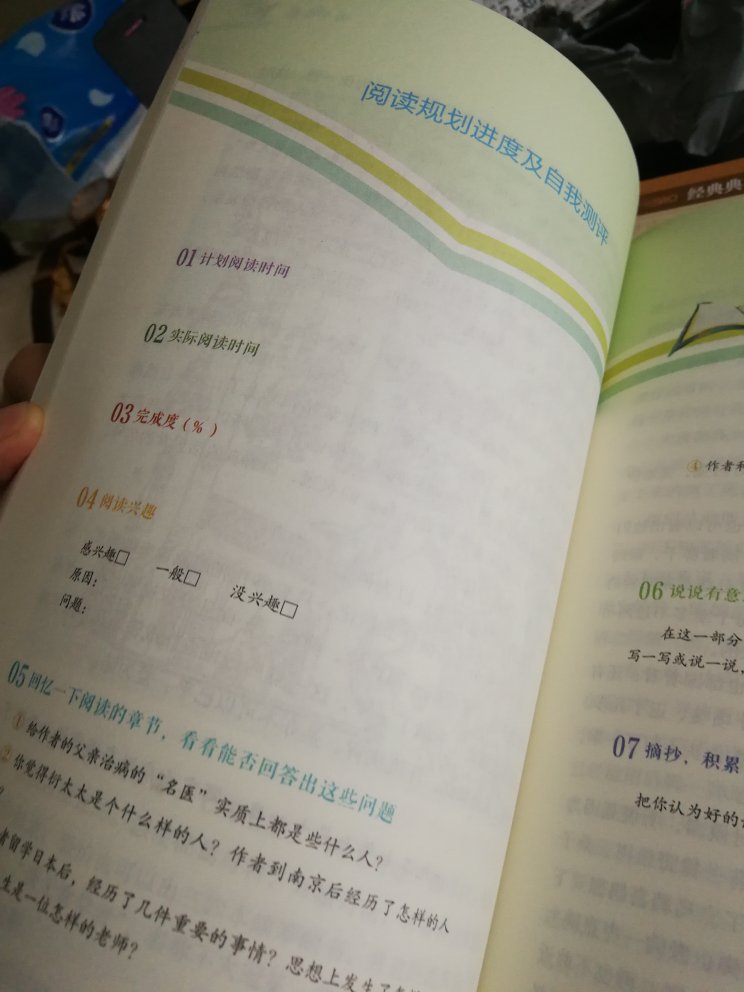 阅读规划进度及自我测评
01 计划阅读时间
02 实际阅读时间
03 完成度（%）
04 阅读兴趣
感兴趣□ 一般□ 没兴趣□
原因：
问题：
05 回忆一下阅读的章节，看看能否回答出这些问题
① 给作者的父亲治病的“名医”实质上都是些什么人？
② 你觉得衍太太是个什么样的人？作者到南京后经历了怎样的人
？
者留学日本后，经历了几件重要的事情？思想上发生了
生是一位怎样的老师？
经典
④ 作者
06 说说有意
在这一部分
写一写或说一说，
07 摘抄，积累
把你认为好的